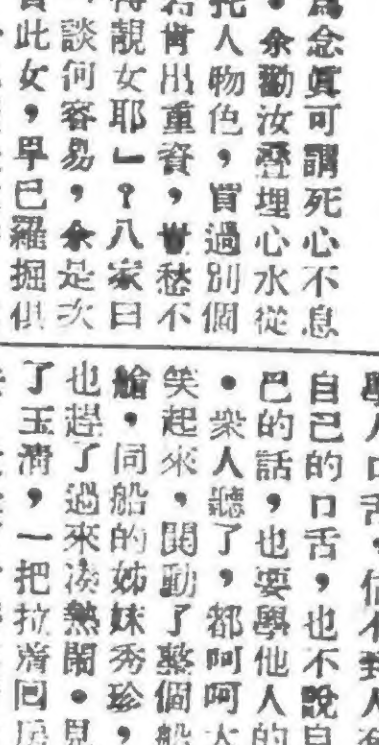 為念真可謂死心不息
。余勸汝叠埋心水從
托人物色，買過別個
若肯出重資，豈愁不
得靚女耶」？八家曰
，談何容易，余是次
此女，早已羅掘俱
學人口舌，
自己的口舌，也不說自
己的話，也要學他人的
。衆人聽了，都呵呵大
笑起來，鬨動了整個船
艙，同船的姊妹秀珍，
也趕了過來湊熱鬧。見
了玉清，一把拉着回房